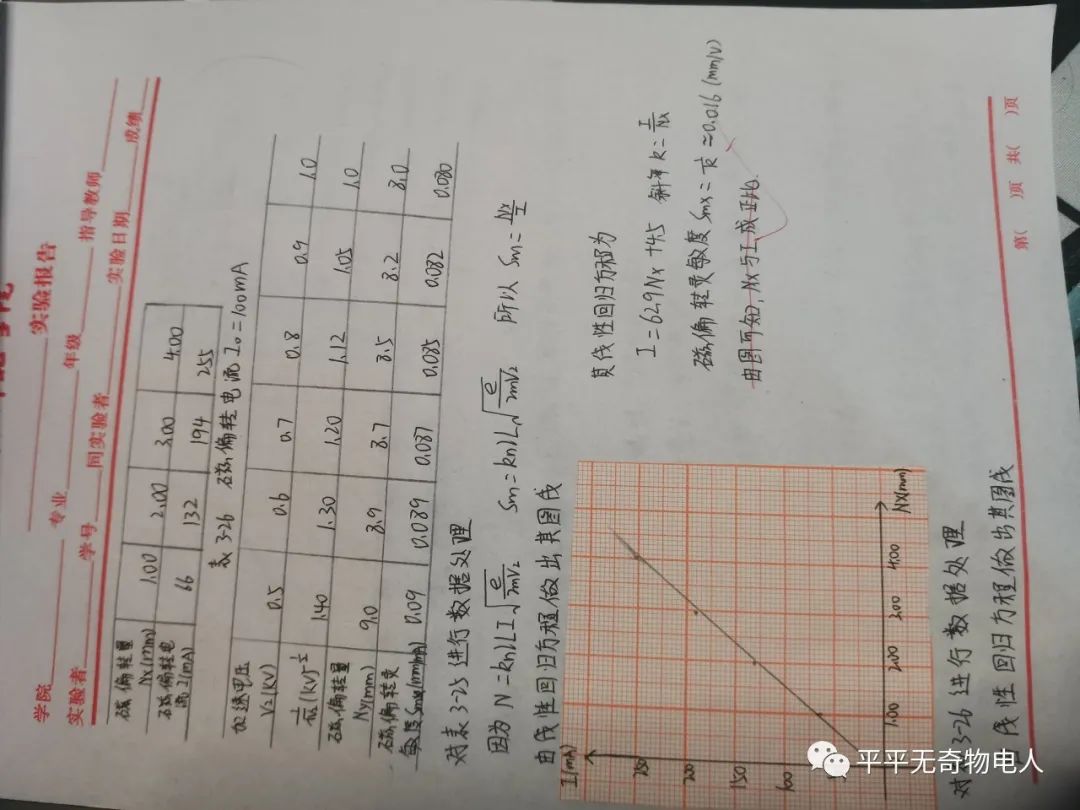 学院
实验报告
学院 专业 年级 指导教师
实验者 学号 同实验者 实验日期 成绩
磁偏转量 Nx(mm) 1.00 2.00 3.00 4.00
磁偏转电流 I(mA) 66 132 194 255
表 3-26 磁偏转电流 I₀=100mA
加速电压 V₂(kV) 0.5 0.6 0.7 0.8 0.9 1.0
1/√V₂ (kV)^-½ 1.40 1.30 1.20 1.12 1.05 1.0
磁偏转量 Ny(mm) 9.0 8.9 8.7 8.5 8.2 8.0
磁偏转灵敏度 (mm/mA) 0.09 0.089 0.087 0.085 0.082 0.080
对表 3-25 进行数据处理
因为 N=knlLI√(e/2mV₂) Sm=knlL√(e/2mV₂) 所以 Sm=Nx/I
由线性回归方程做出其图线
I(mA)
250
200
150
100
1.00 2.00 3.00 4.00 Nx(mm)
其线性回归方程为
I=62.9Nx+4.5 斜率 k=I/Nx
磁偏转灵敏度 Smx=1/k≈0.016 (mm/V)
由图可知,Nx与I成正比.
3-26 进行数据处理
线性回归方程做出其图线
第( )页 共( )页
平平无奇物电人